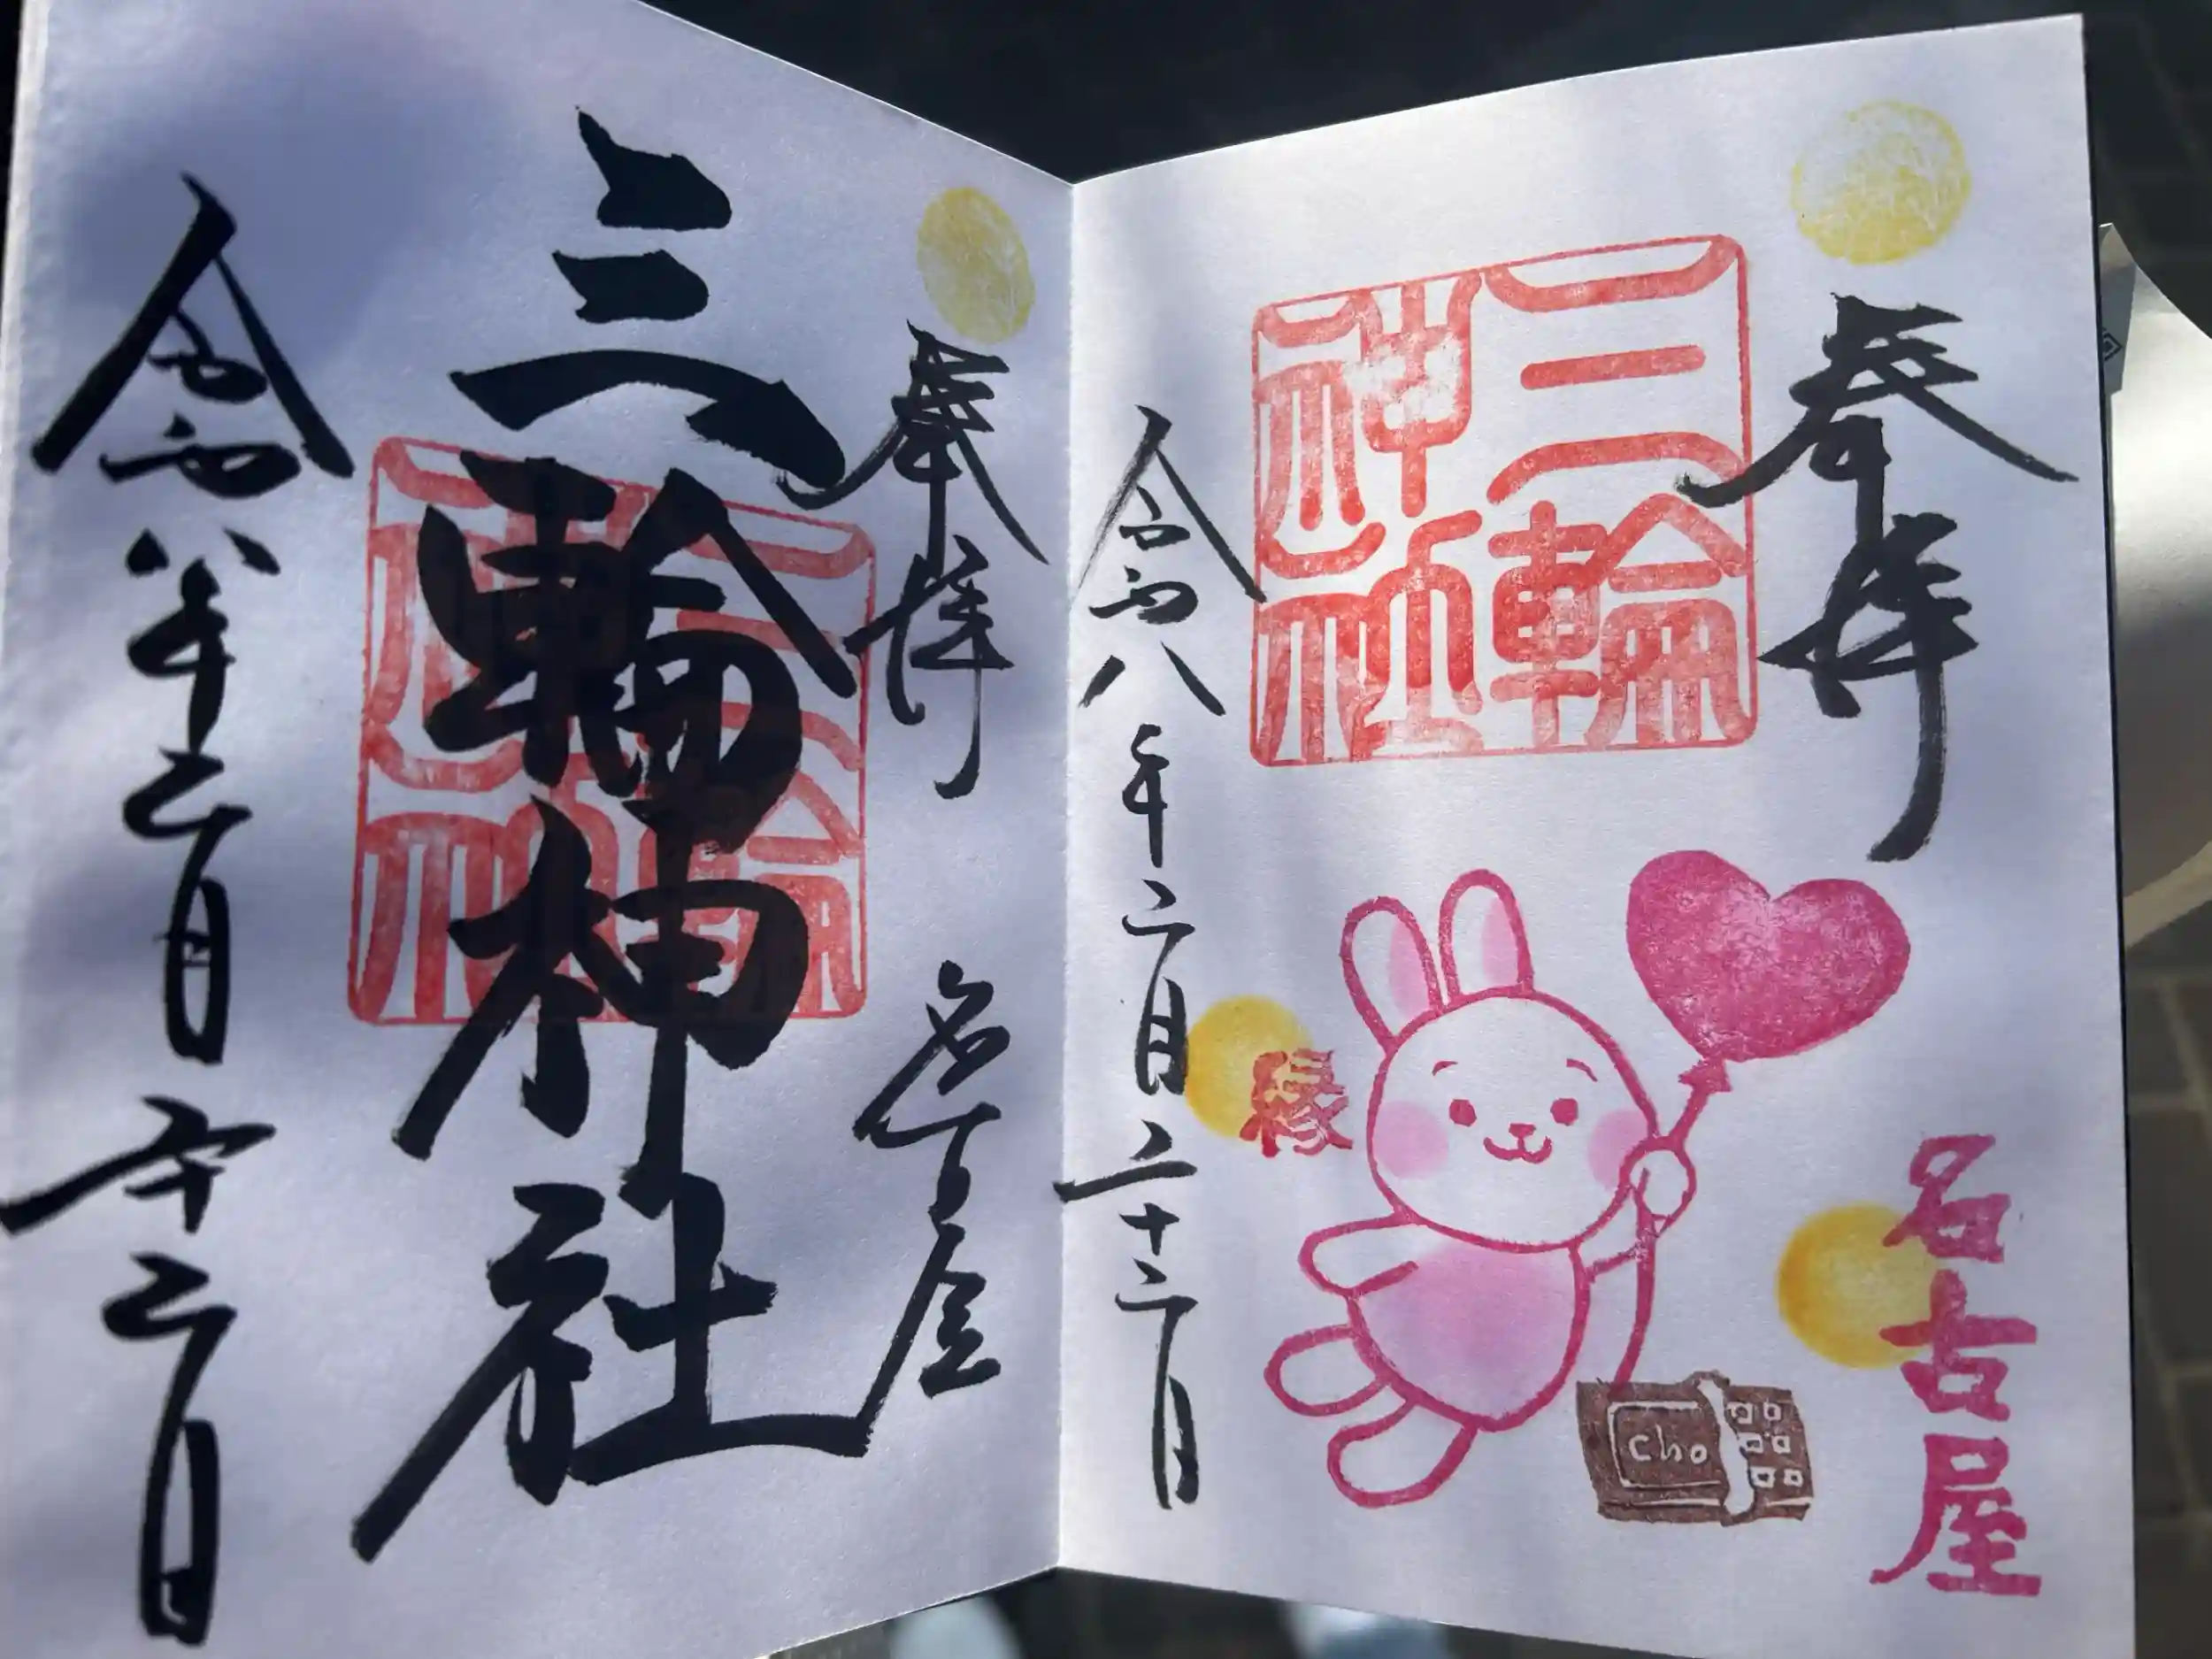 奉拝
名古屋
三輪
神社
縁
cho
令和八年二月二十二日
奉拝
名古屋
三輪神社
三輪
神社
令和八年二月廿二日